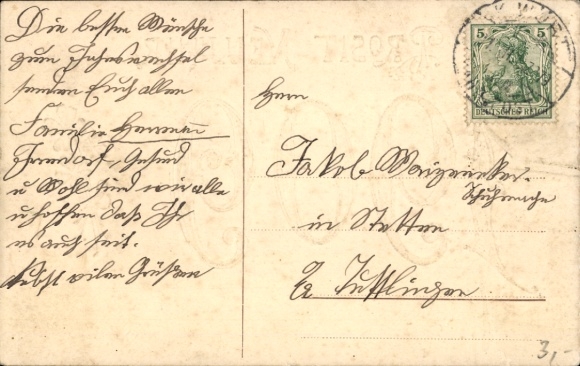 Die besten Wünsche
zum Jahreswechsel
senden Euch allen
Familie Hermann
Irrendorf, Gesund
u Wohl sind wir alle
u hoffen daß Ihr
es auch seit.
Nebst vielen Grüßen
5 5
DEUTSCHES REICH
Herrn
Jakob
Schuhmacher
in Stetten
Tuttlingen
3,-